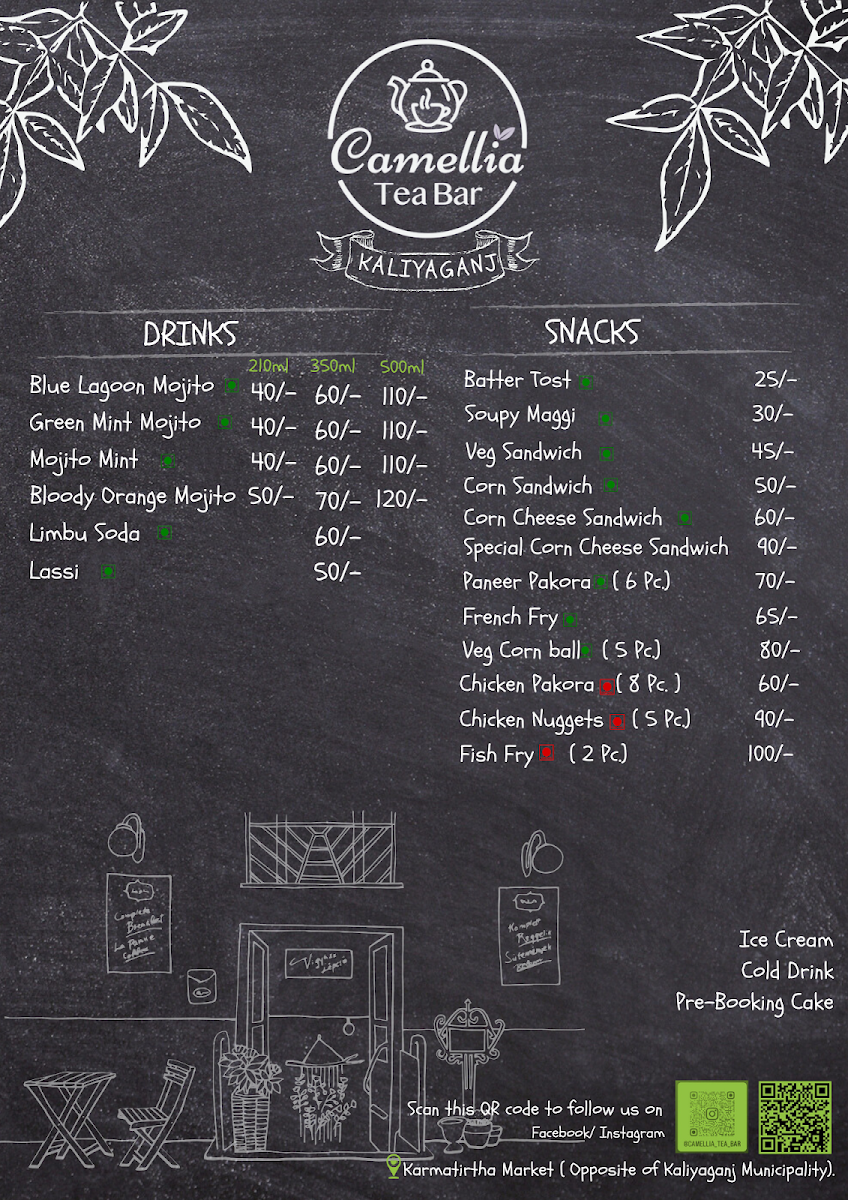 Camellia
Tea Bar
KALIYAGANJ
DRINKS
210ml 350ml 500ml
Blue Lagoon Mojito 40/- 60/- 110/-
Green Mint Mojito 40/- 60/- 110/-
Mojito Mint 40/- 60/- 110/-
Bloody Orange Mojito 50/- 70/- 120/-
Limbu Soda 60/-
Lassi 50/-
SNACKS
Batter Tost 25/-
Soupy Maggi 30/-
Veg Sandwich 45/-
Corn Sandwich 50/-
Corn Cheese Sandwich 60/-
Special Corn Cheese Sandwich 90/-
Paneer Pakora ( 6 Pc.)
70/-
French Fry 65/-
Veg Corn ball ( 5 Pc.) 80/-
Chicken Pakora ( 8 Pc. ) 60/-
Chicken Nuggets ( 5 Pc.) 90/-
Fish Fry ( 2 Pc.) 100/-
Complete
Breakfast
La Panne
Komplet
Reggelik
Sütemények
Vigyázz
Lépcső
Ice Cream
Cold Drink
Pre-Booking Cake
Scan this QR code to follow us on
Facebook/ Instagram
@CAMELLIA_TEA_BAR
Karmatirtha Market ( Opposite of Kaliyaganj Municipality).